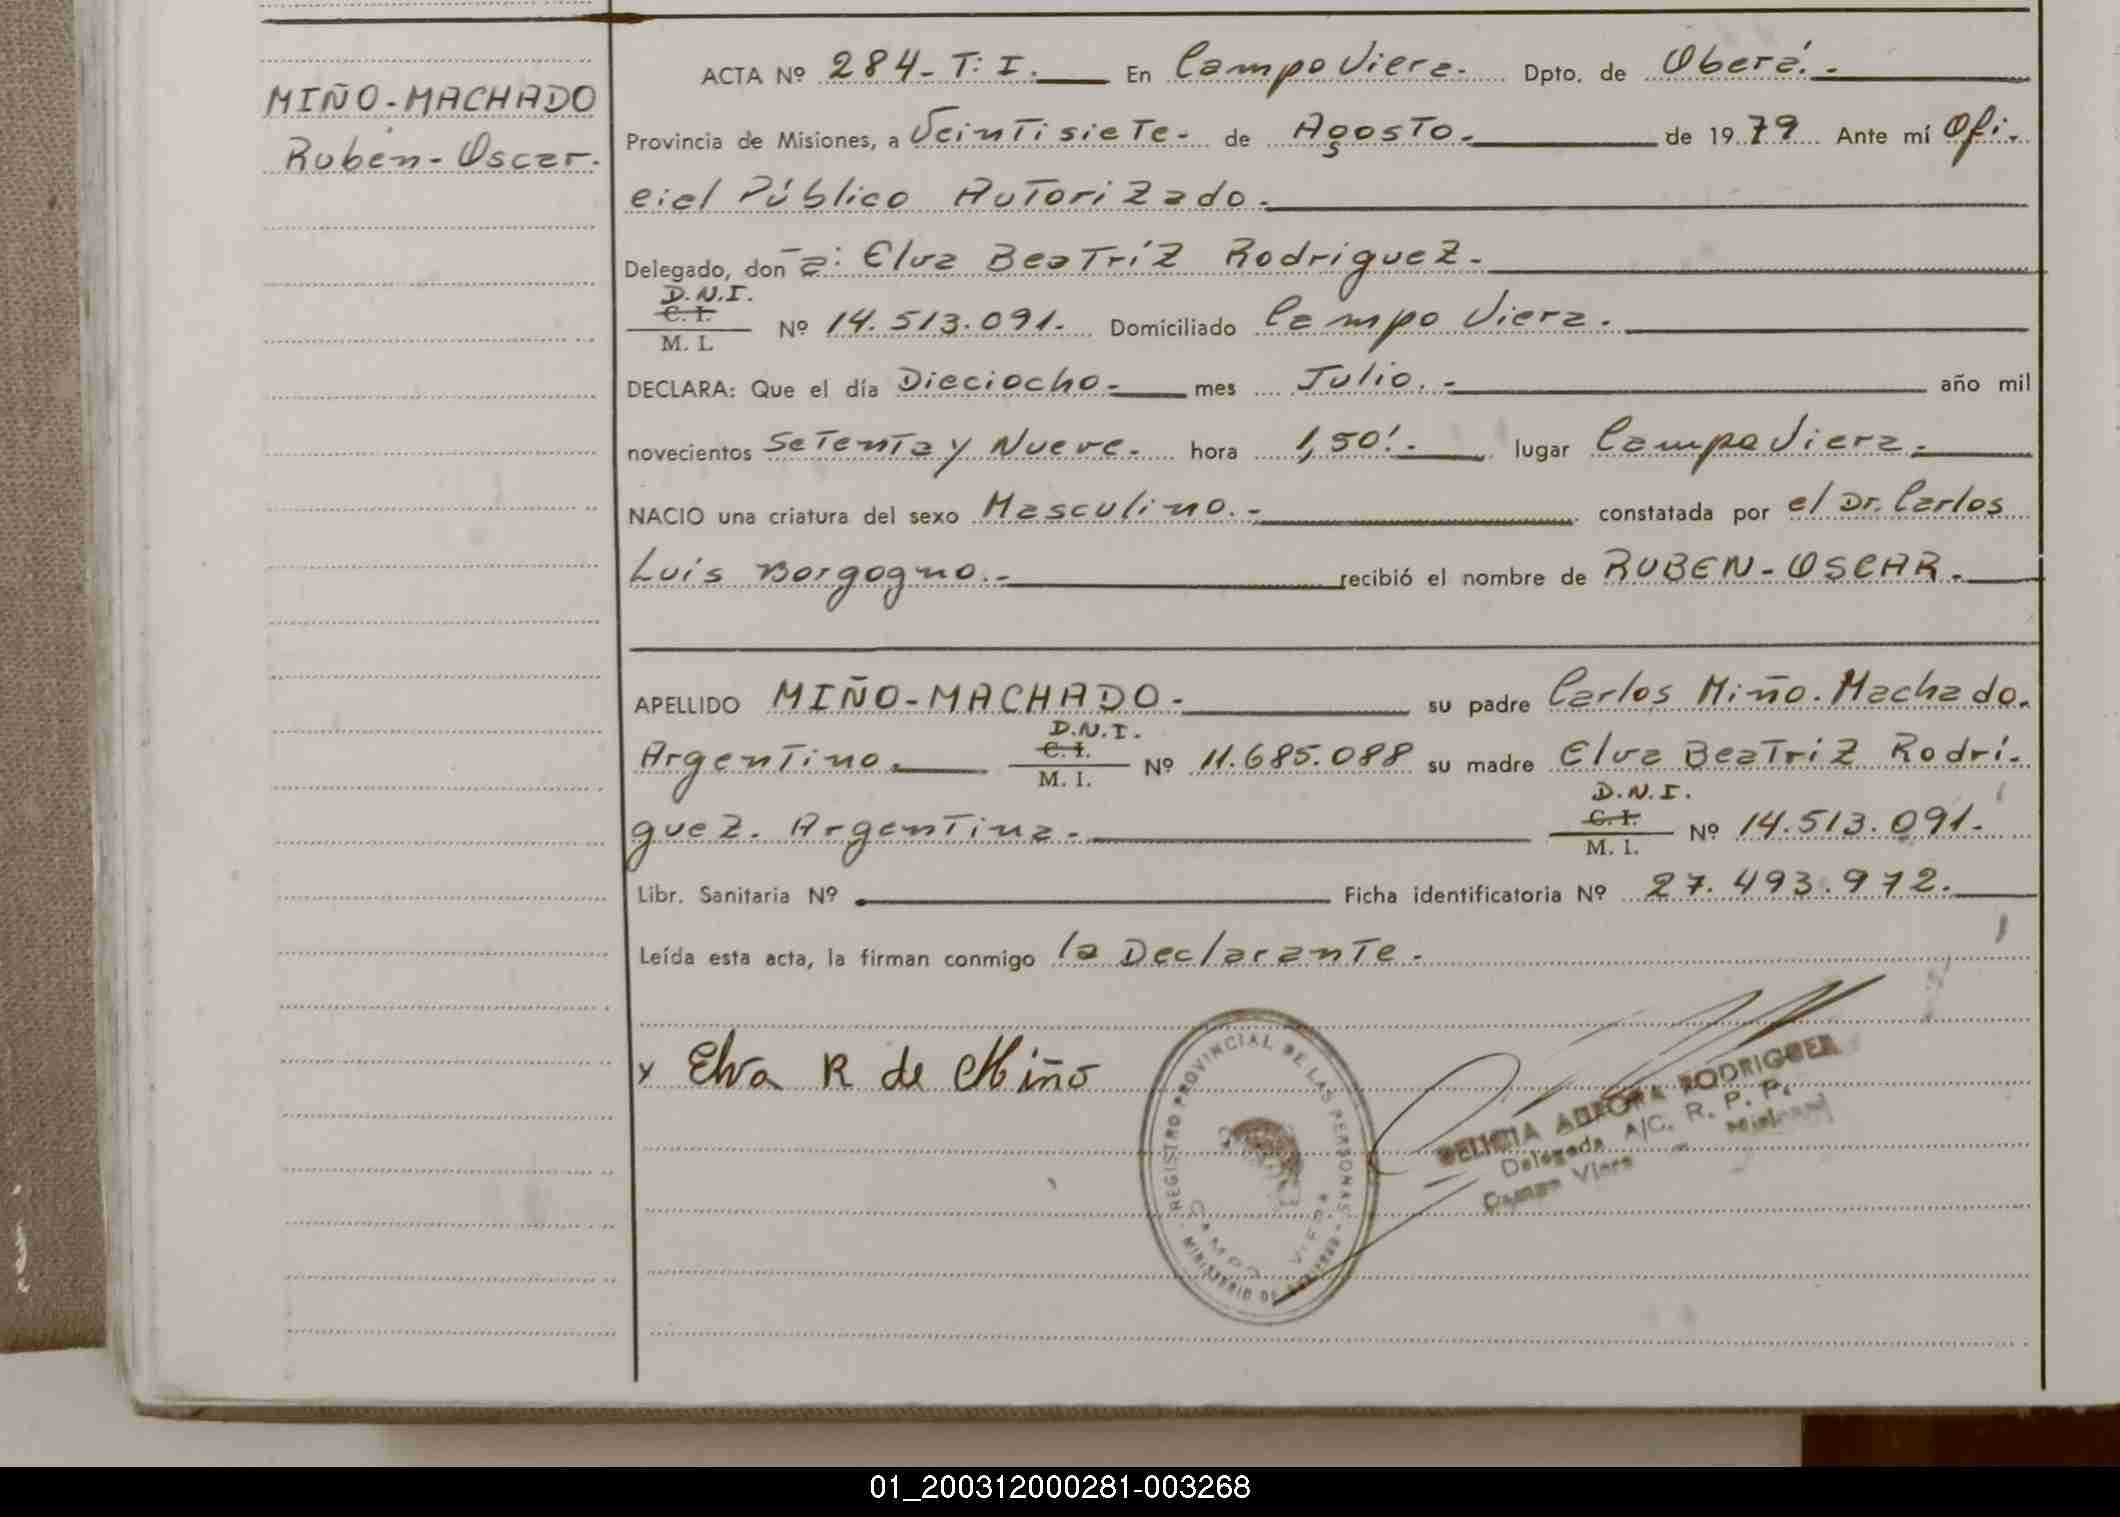 MIÑO-MACHADO
Rubén-Oscar.
ACTA Nº 284-T: I. En Campo Viera. Dpto. de Oberá.
Provincia de Misiones, a Veintisiete- de Agosto. de 1979 Ante mí Ofi-
cial Público Autorizado.
Delegado, don -a: Elva Beatríz Rodriguez.
D.N.I.
C. I.
M. I. Nº 14.513.091. Domiciliado Campo Viera.
DECLARA: Que el día Dieciocho- mes Julio. año mil
novecientos Setenta y Nueve. hora 1,50'. lugar Campo Viera.
NACIO una criatura del sexo Masculino. constatada por el Dr. Carlos
Luis Borgogno. recibió el nombre de RUBEN-OSCAR.
APELLIDO MIÑO-MACHADO. su padre Carlos Miño-Machado.
D.N.I.
C. I.
Argentino. M. I. Nº 11.685.088 su madre Elva Beatriz Rodrí-
D.N.I.
C. I.
guez. Argentina. M. I. Nº 14.513.091.
Libr. Sanitaria Nº Ficha identificatoria Nº 27.493.972.
Leída esta acta, la firman conmigo la Declarante.
x Elva R de Miño
REGISTRO PROVINCIAL DE LAS PERSONAS
MINISTERIO DE GOBIERNO
CAMPO VIERA
AURORA RODRIGUEZ
Delegada A/C. R. P. P.
Campo Viera - Misiones
01_200312000281-003268